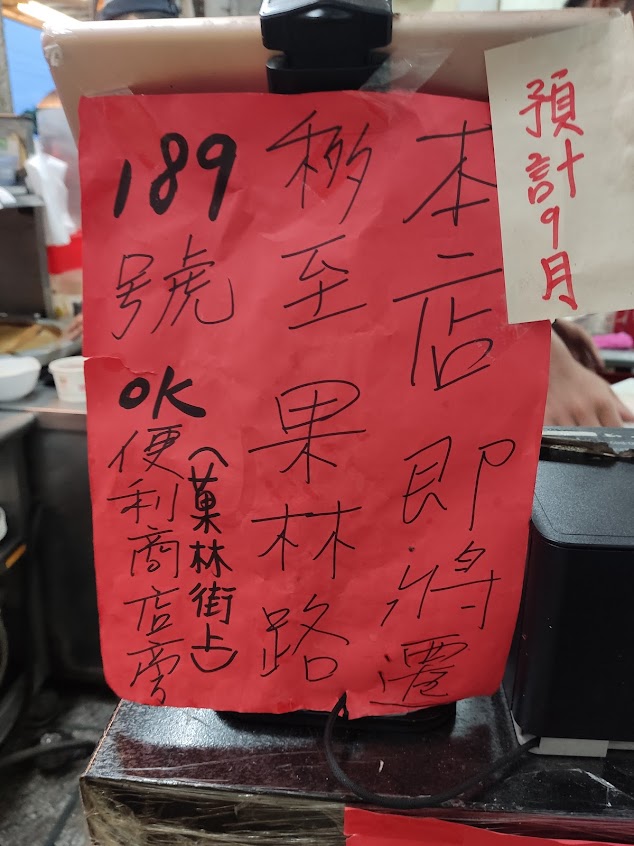 預計9月
本店即將遷
移至果林路
189號
OK便利商店旁
(菓林街上)